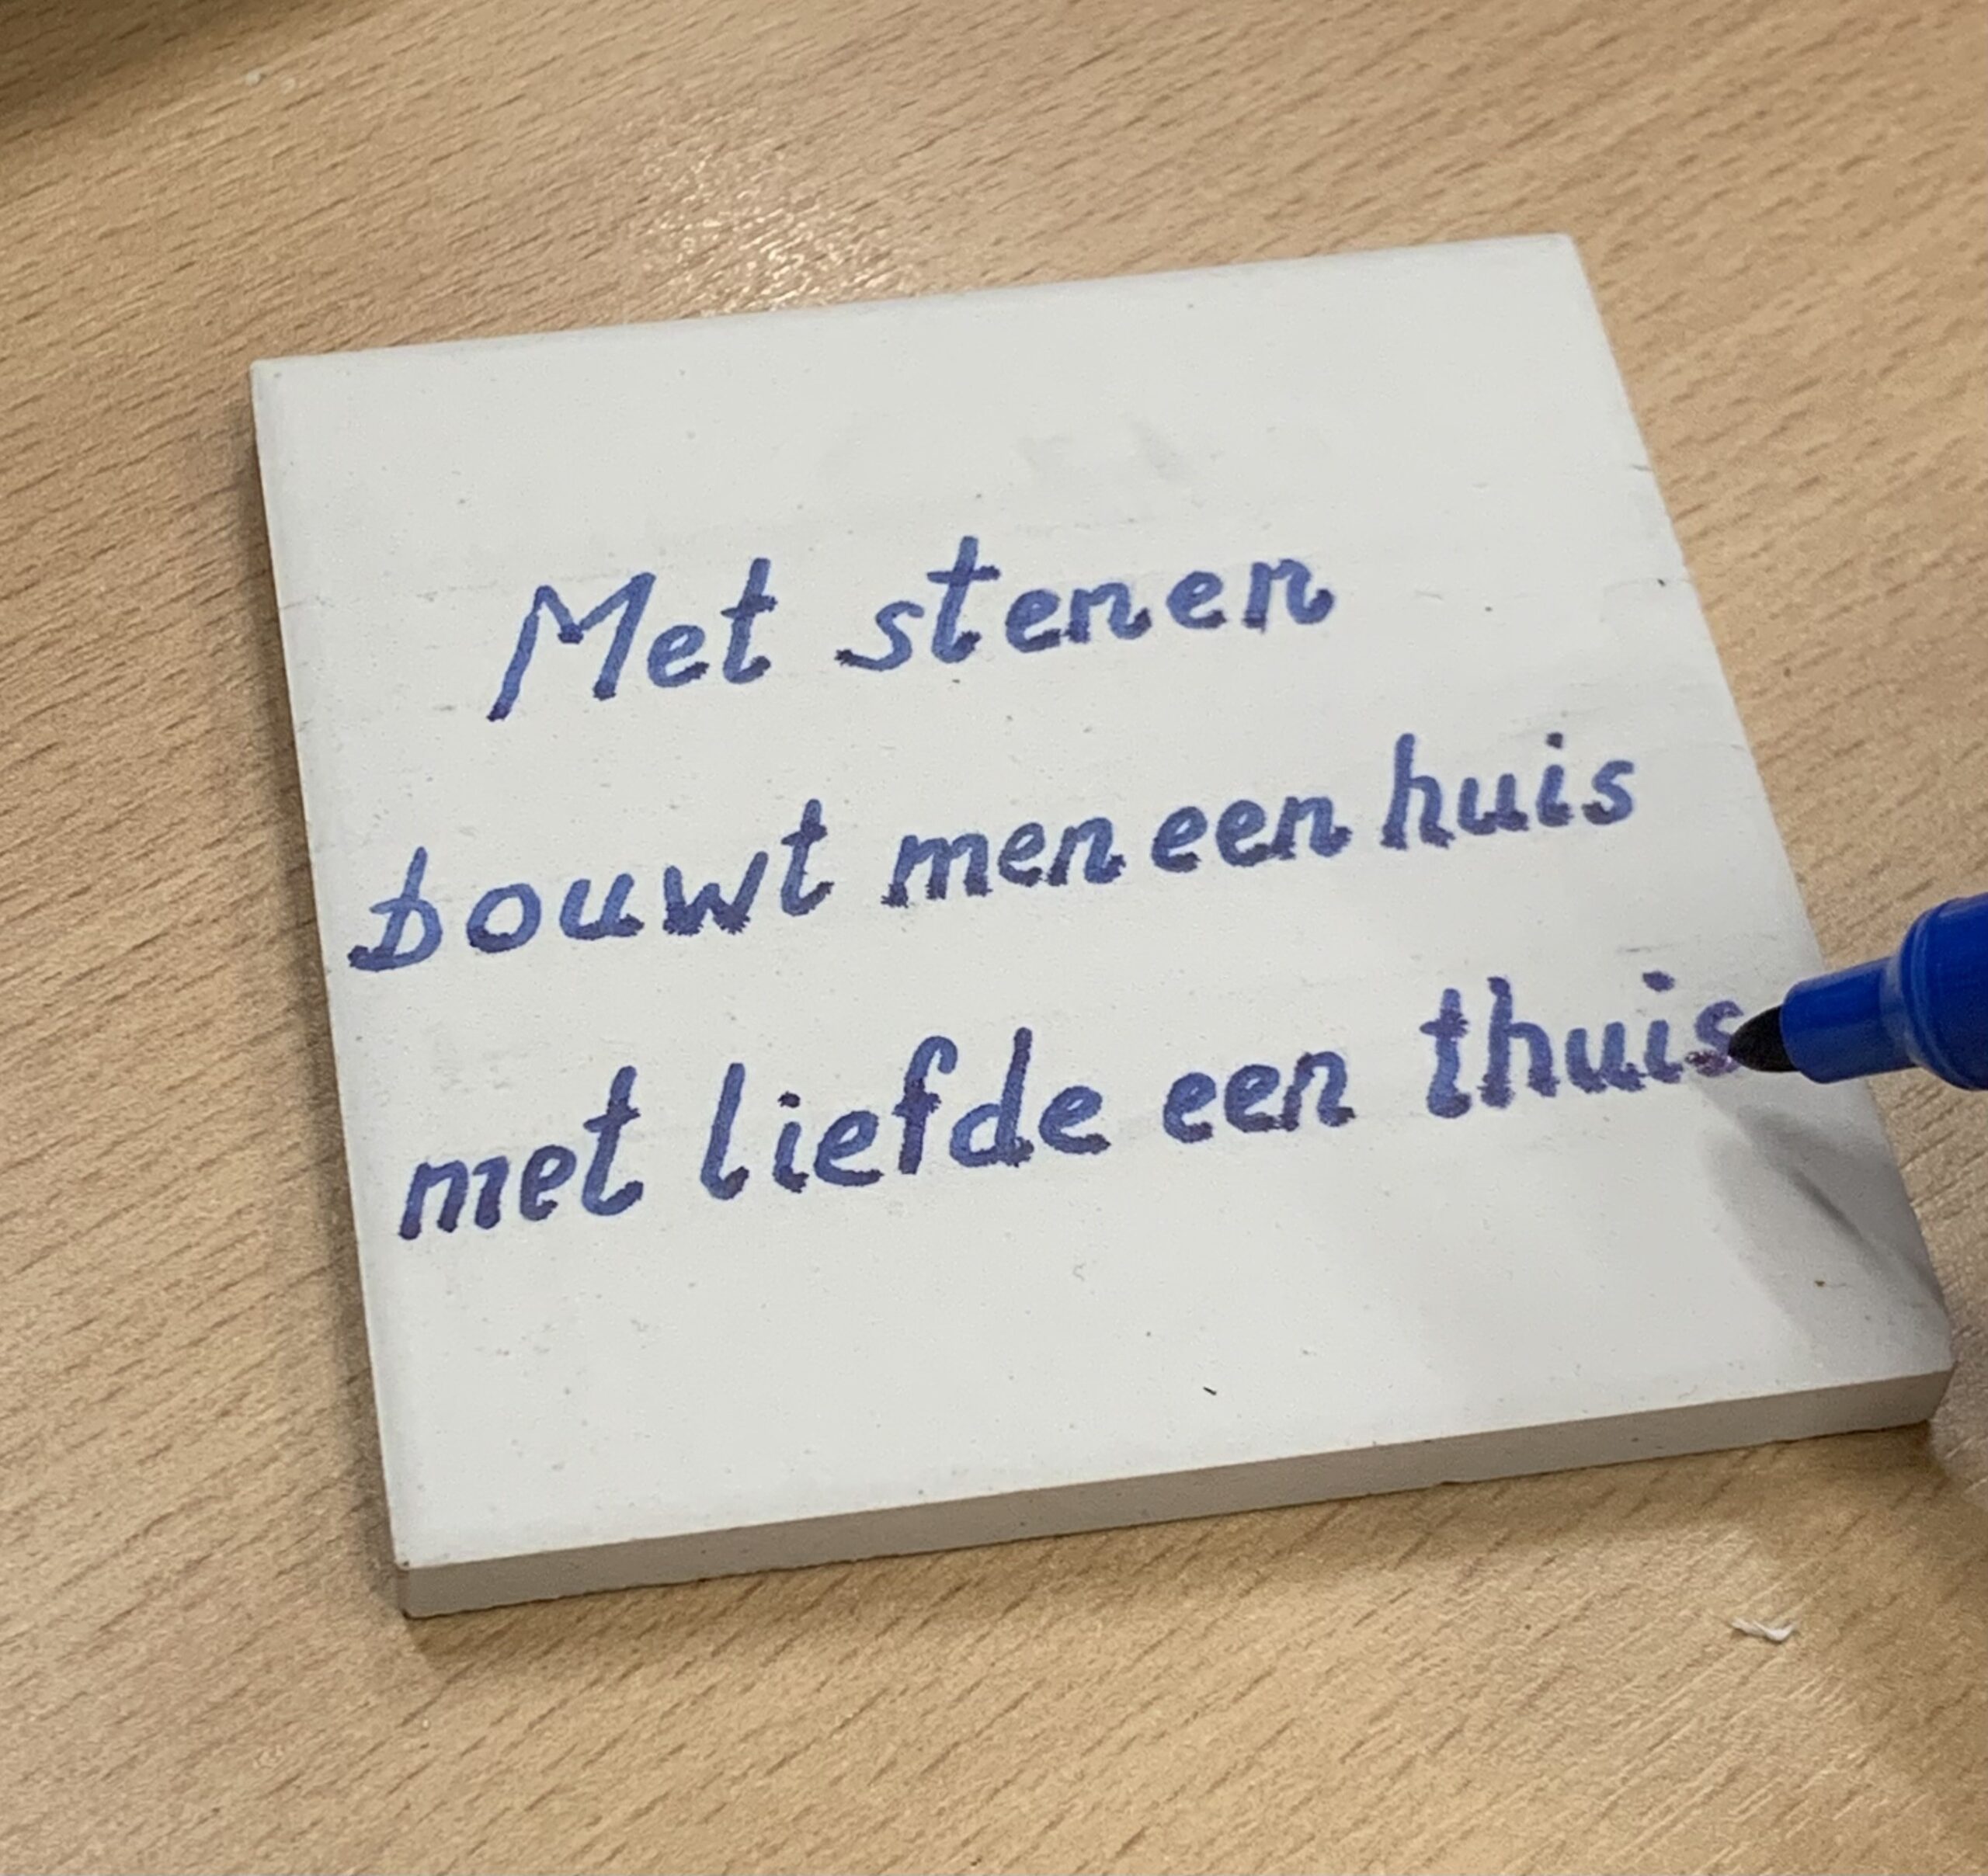 Met stenen
bouwt men een huis
met liefde een thuis